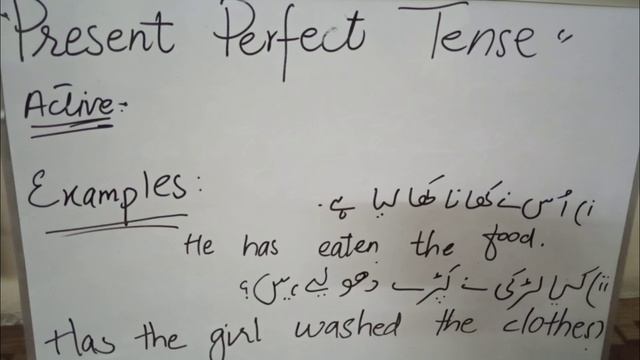 "Present Perfect Tense"
Active:-
Examples:
i) اُس نے کھانا کھا لیا ہے۔
He has eaten the food.
ii) کیا لڑکی نے کپڑے دھو لیے ہیں؟
Has the girl washed the clothes?